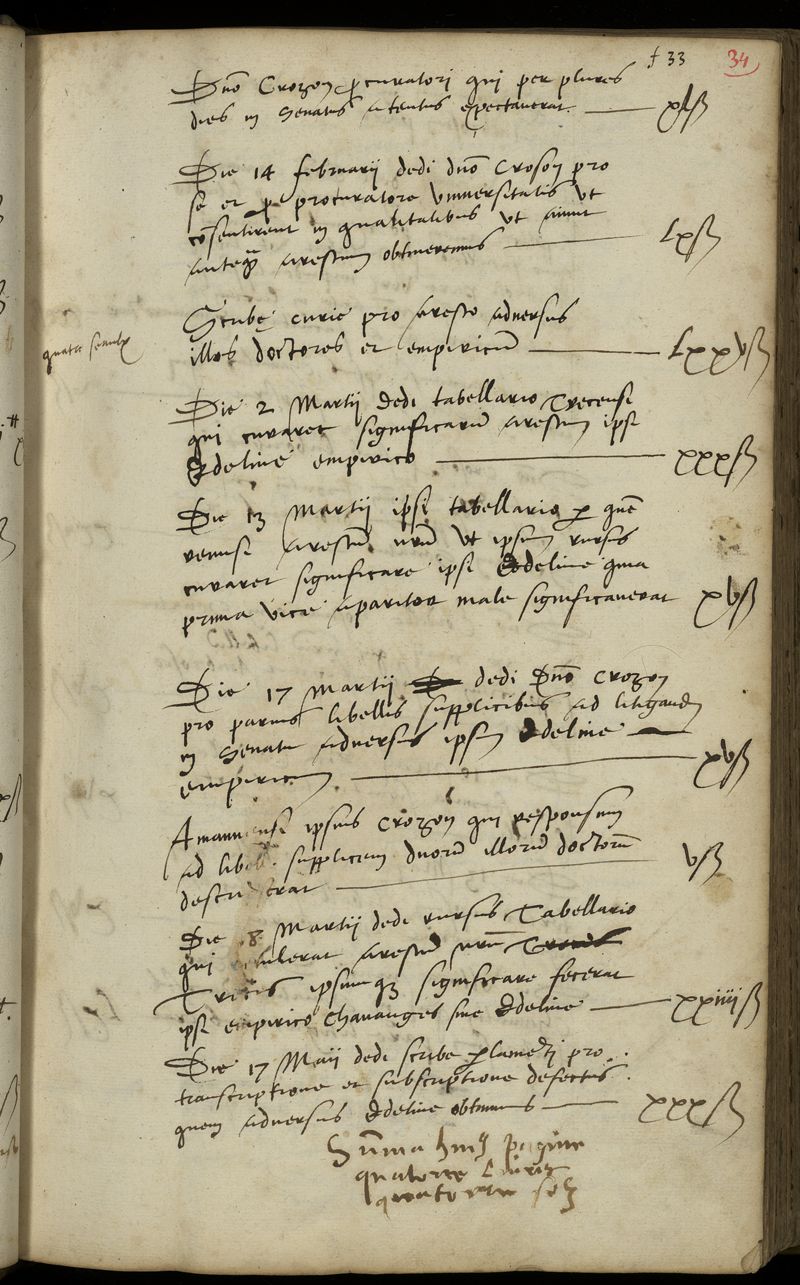 f 33 34
Dno Crozon procuratori qui per plures
dies in Senatus atentus expectaverat xlß
Die 14 februarij dedi dno Croson pro
se et pro procuratore Universitatis ut
cosentirent in qualitatibus ut aiunt
anteq arestum obtineremus Lxß
Scribe curie pro Aresto adversus
illos doctores et empiricu Lxxvß
Die 2 Martij dedi tabellario Trecensi
qui curaret significariu arestum ipsi
Edeline empirico xxxß
Die 13 Martij ipsi tabellario p que
remisi Arestu nru ut ipsum rursus
curaret significare ipsi Edeline quia
prima vice aparitor male significaverat xvß
Die 17 Martij dedi Dno Crozon
pro parvis libellis supplicibus ad litigand
in Senatu adversus ipsum Edeline
empiricum xvß
Amanuensi ipsius Crozon qui responsum
ad libel. supplicem duoru illoru doctoru
descri erat vß
Die 8 Martij dedi rursus Tabellario
qui tulerat arestu nru
Trecis ipsumq significare fecerat
ipsi empirico Chavanges sive Edeline xxiiijß
Die 17 Maij dedi scribe plameti pro
transcriptione et subscriptione defectus
quem adversus Edeline obtinuimus xxxß
Suma huiq pagine
quatorze Livrez
quatorze solz